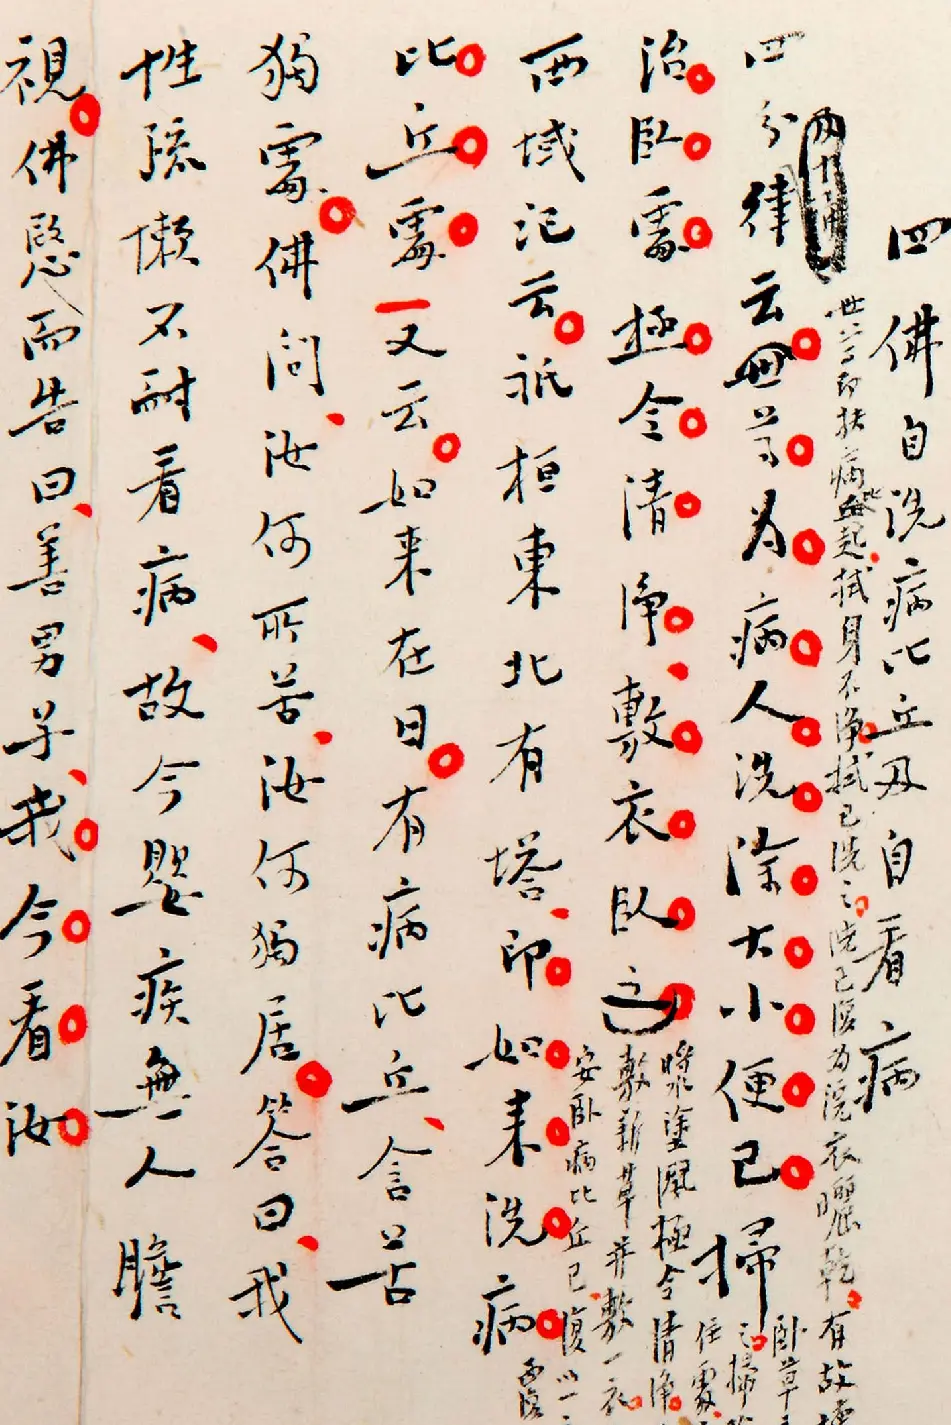 四佛自洗病比丘及自看病
四分律云世尊为病人洗除大小便已掃
治臥處極令清淨敷衣臥之
西域记云祇桓東北有塔即如来洗病
比丘處又云如来在日有病比丘含苦
獨處佛問汝何所苦汝何獨居答曰我
性疏懶不耐看病故今嬰疾無人瞻
視佛愍而告曰善男子我今看汝
即扶病比丘起拭身不淨拭已洗之洗已復为浣衣曬乾有故
臥草
之掃除
住處
泥塗灑極令清淨
敷新草并敷一衣
安臥病比丘已復以一